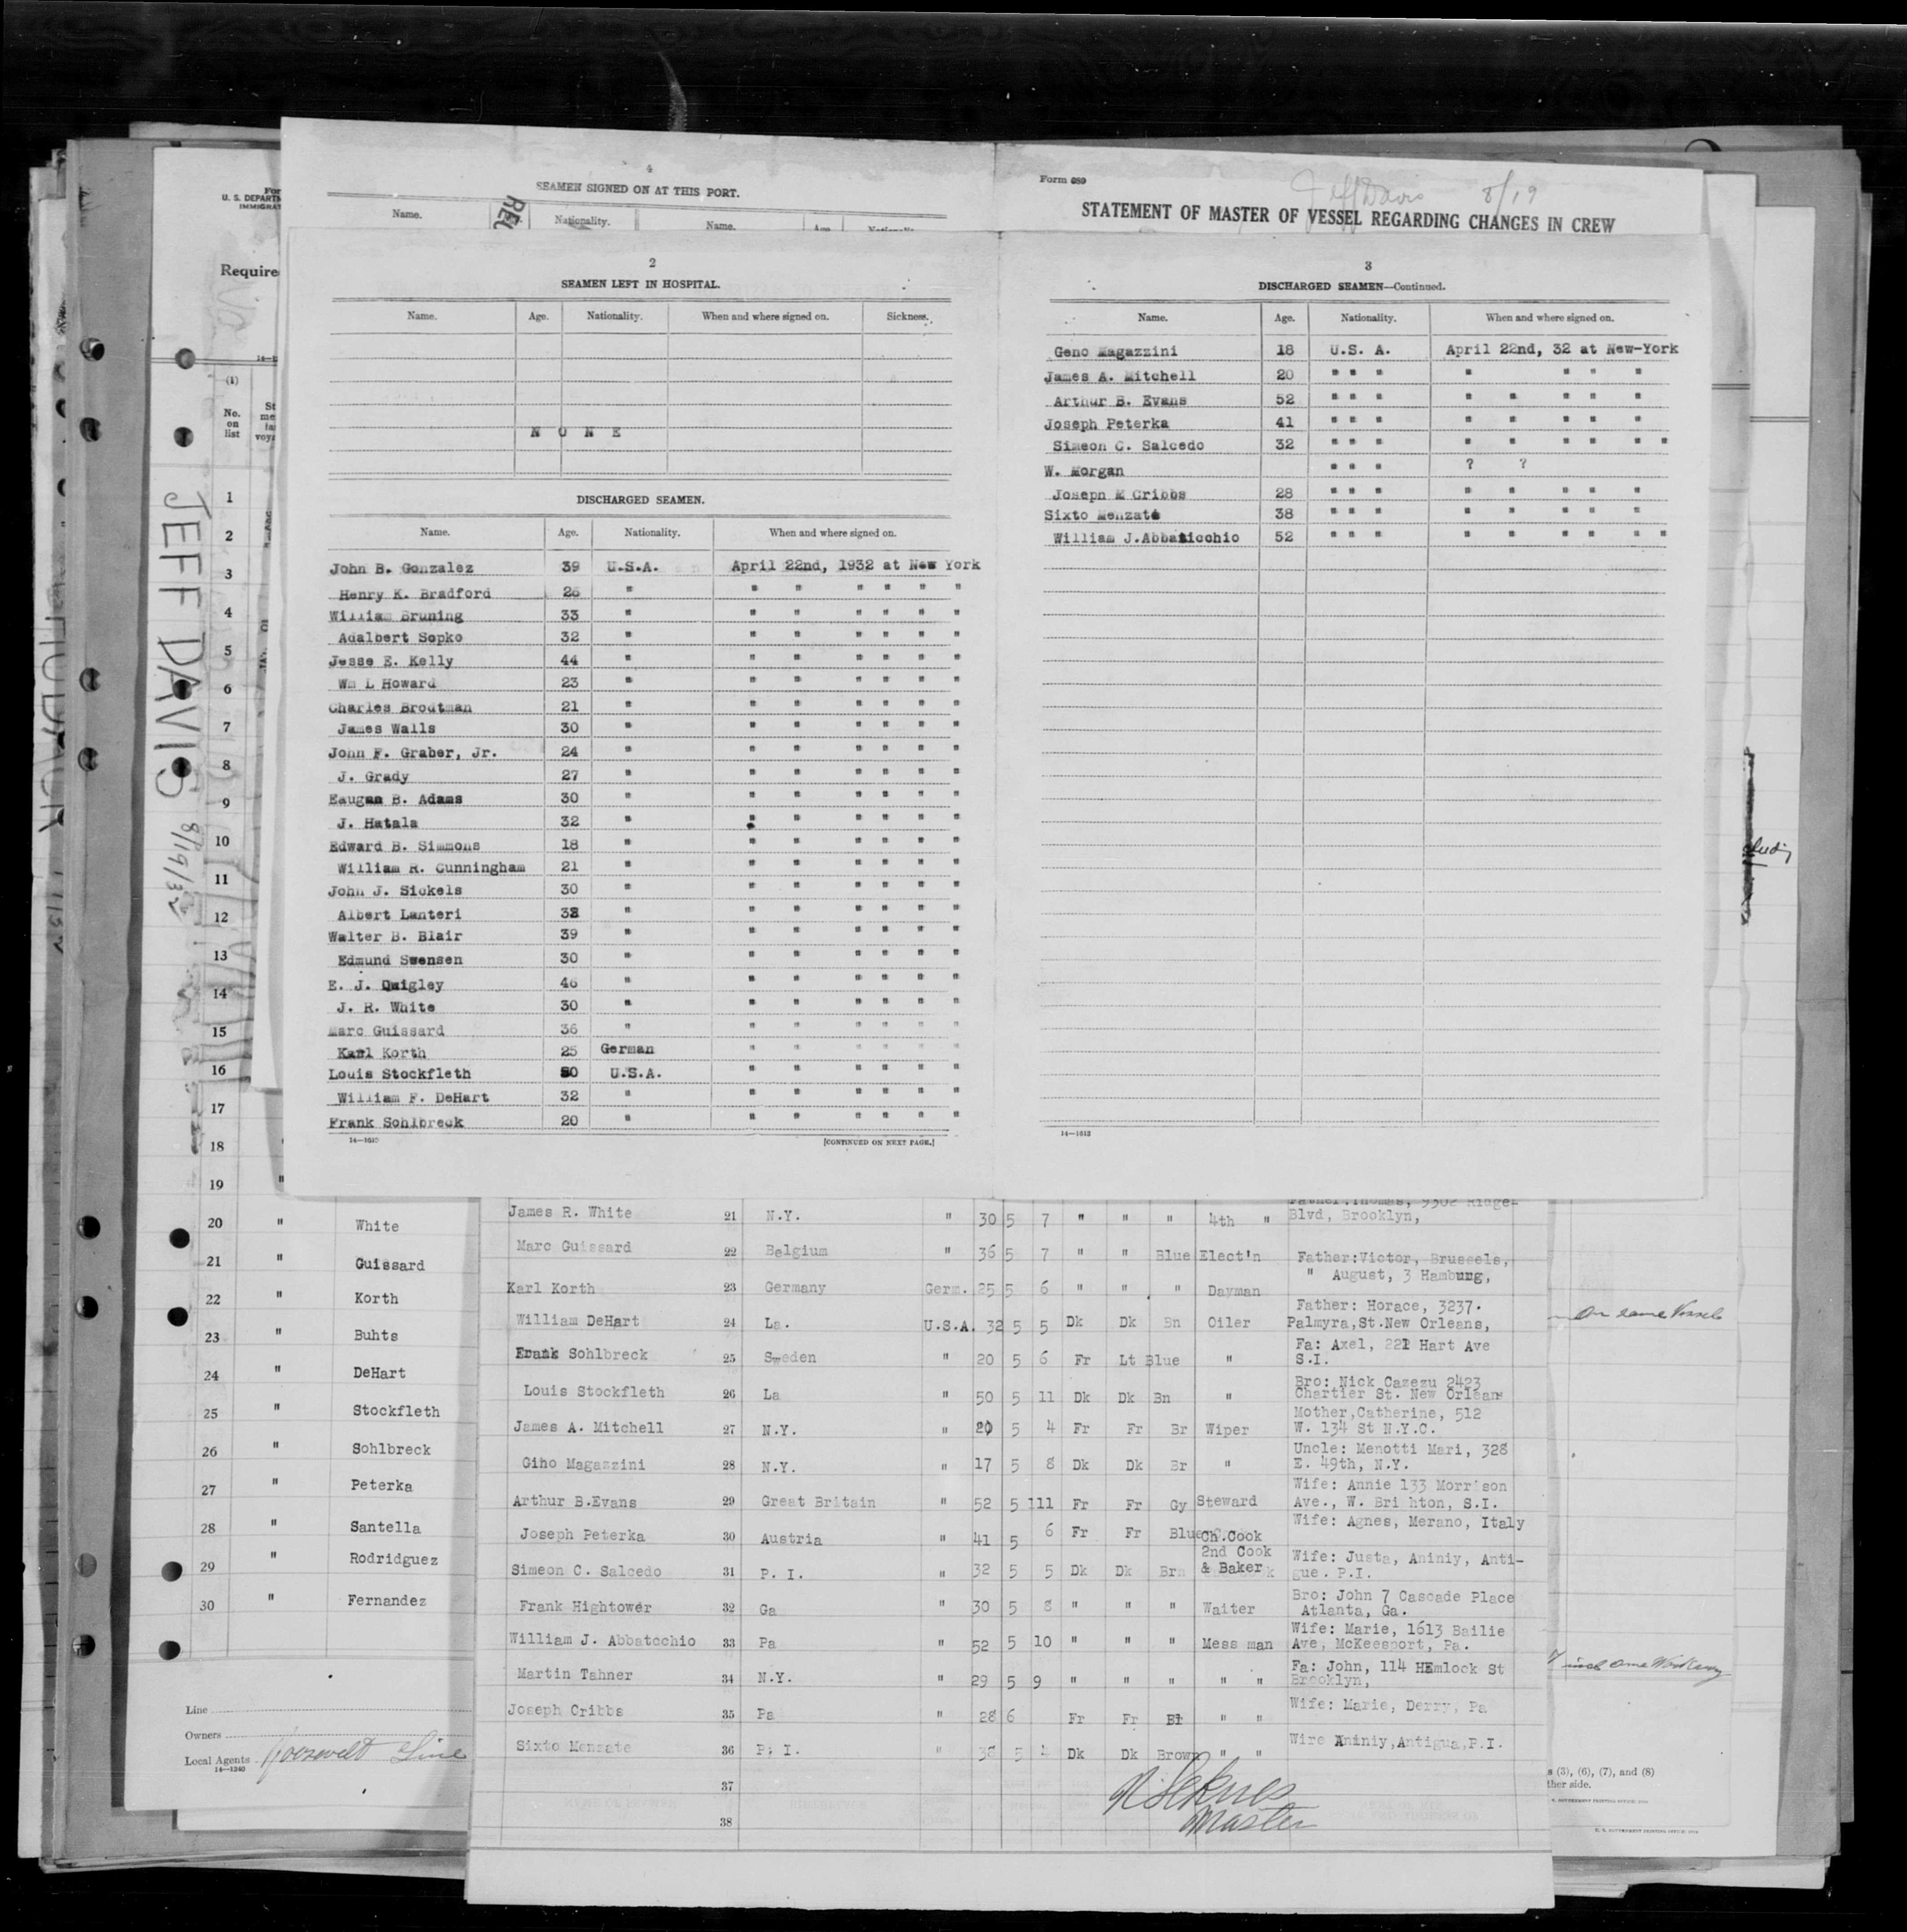 4
SEAMEN SIGNED ON AT THIS PORT.
Name. Nationality. Name. Age
REL
Form 689
Jeff Davis 8/19
STATEMENT OF MASTER OF VESSEL REGARDING CHANGES IN CREW
2
SEAMEN LEFT IN HOSPITAL.
Name. Age. Nationality. When and where signed on. Sickness.
N O N E
DISCHARGED SEAMEN.
Name. Age. Nationality. When and where signed on.
John B. Gonzalez 39 U.S.A. April 22nd, 1932 at New York
Henry K. Bradford 26 " " " " " " "
William Bruning 33 " " " " " " "
Adalbert Sopko 32 " " " " " " "
Jesse E. Kelly 44 " " " " " " "
Wm L Howard 23 " " " " " " "
Charles Broutman 21 " " " " " " "
James Walls 30 " " " " " " "
John F. Graber, Jr. 24 " " " " " " "
J. Grady 27 " " " " " " "
Eaugan B. Adams 30 " " " " " " "
J. Hatala 32 " " " " " " "
Edward B. Simmons 18 " " " " " " "
William R. Cunningham 21 " " " " " " "
John J. Sickels 30 " " " " " " "
Albert Lanteri 38 " " " " " " "
Walter B. Blair 39 " " " " " " "
Edmund Swensen 30 " " " " " " "
E. J. Quigley 46 " " " " " " "
J. R. White 30 " " " " " " "
Marc Guissard 36 " " " " " " "
Karl Korth 25 German " " " " " "
Louis Stockfleth 50 U.S.A. " " " " " "
William F. DeHart 32 " " " " " " "
Frank Sohlbreck 20 " " " " " " "
14—1619 [CONTINUED ON NEXT PAGE.]
3
DISCHARGED SEAMEN—Continued.
Name. Age. Nationality. When and where signed on.
Geno Magazzini 18 U.S. A. April 22nd, 32 at New-York
James A. Mitchell 20 " " " " " " "
Arthur B. Evans 52 " " " " " " " "
Joseph Peterka 41 " " " " " " " "
Simeon C. Salcedo 32 " " " " " " " " "
W. Morgan " " " ? ?
Joseph M Cribbs 28 " " " " " " " "
Sixto Menzate 38 " " " " " " " "
William J.Abbaticchio 52 " " " " " " " " "
14—1613
For
U. S. DEPARTM
IMMIGRAT
Require
14—1
(1)
No. on list
St
me
fa
voya
JEFF DAVIS 8/19/32
1
2
3
4
5
6
7
8
9
10
11
12
13
14
15
16
17
18
19 "
20 " White
21 " Guissard
22 " Korth
23 " Buhts
24 " DeHart
25 " Stockfleth
26 " Sohlbreck
27 " Peterka
28 " Santella
29 " Rodridguez
30 " Fernandez
Line
Owners
Local Agents Roosevelt Line
14—1240
Father:Thomas, 9302 Ridge-
James R. White 21 N.Y. " 30 5 7 " " " 4th " Blvd, Brooklyn,
Marc Guissard 22 Belgium " 36 5 7 " " Blue Elect'n Father:Victor, Brussels,
Karl Korth 23 Germany Germ. 25 5 6 " " " Dayman " August, 3 Hamburg,
Father: Horace, 3237.
William DeHart 24 La. U.S.A. 32 5 5 Dk Dk Bn Oiler Palmyra,St.New Orleans,
Fa: Axel, 221 Hart Ave
Frank Sohlbreck 25 Sweden " 20 5 6 Fr Lt Blue " S.I.
Bro: Nick Cazezu 2423
Louis Stockfleth 26 La " 50 5 11 Dk Dk Bn " Chartier St. New Orleans
Mother,Catherine, 512
James A. Mitchell 27 N.Y. " 20 5 4 Fr Fr Br Wiper W. 134 St N.Y.C.
Uncle: Menotti Mari, 328
Giho Magazzini 28 N.Y. " 17 5 8 Dk Dk Br " E. 49th, N.Y.
Wife: Annie 133 Morrison
Arthur B.Evans 29 Great Britain " 52 5 111 Fr Fr Gy Steward Ave., W. Bri hton, S.I.
Joseph Peterka 30 Austria " 41 5 6 Fr Fr Blue Ch.Cook Wife: Agnes, Merano, Italy
2nd Cook Wife: Justa, Aniniy, Anti-
Simeon C. Salcedo 31 P. I. " 32 5 5 Dk Dk Brn & Baker gue. P.I.
Bro: John 7 Cascade Place
Frank Hightower 32 Ga " 30 5 8 " " " Waiter Atlanta, Ga.
Wife: Marie, 1613 Bailie
William J. Abbatcchio 33 Pa " 52 5 10 " " " Mess man Ave, McKeesport, Pa.
Fa: John, 114 HEmlock St
Martin Tahner 34 N.Y. " 29 5 9 " " " " " Brooklyn,
Joseph Cribbs 35 Pa " 28 6 Fr Fr Bl " " Wife: Marie, Derry, Pa
Sixto Menzate 36 P. I. " 38 5 4 Dk Dk Brown " " Wife Aniniy,Antigua,P.I.
37
38
Master
on same Vessel
s (3), (6), (7), and (8)
ther side.
U. S. GOVERNMENT PRINTING OFFICE